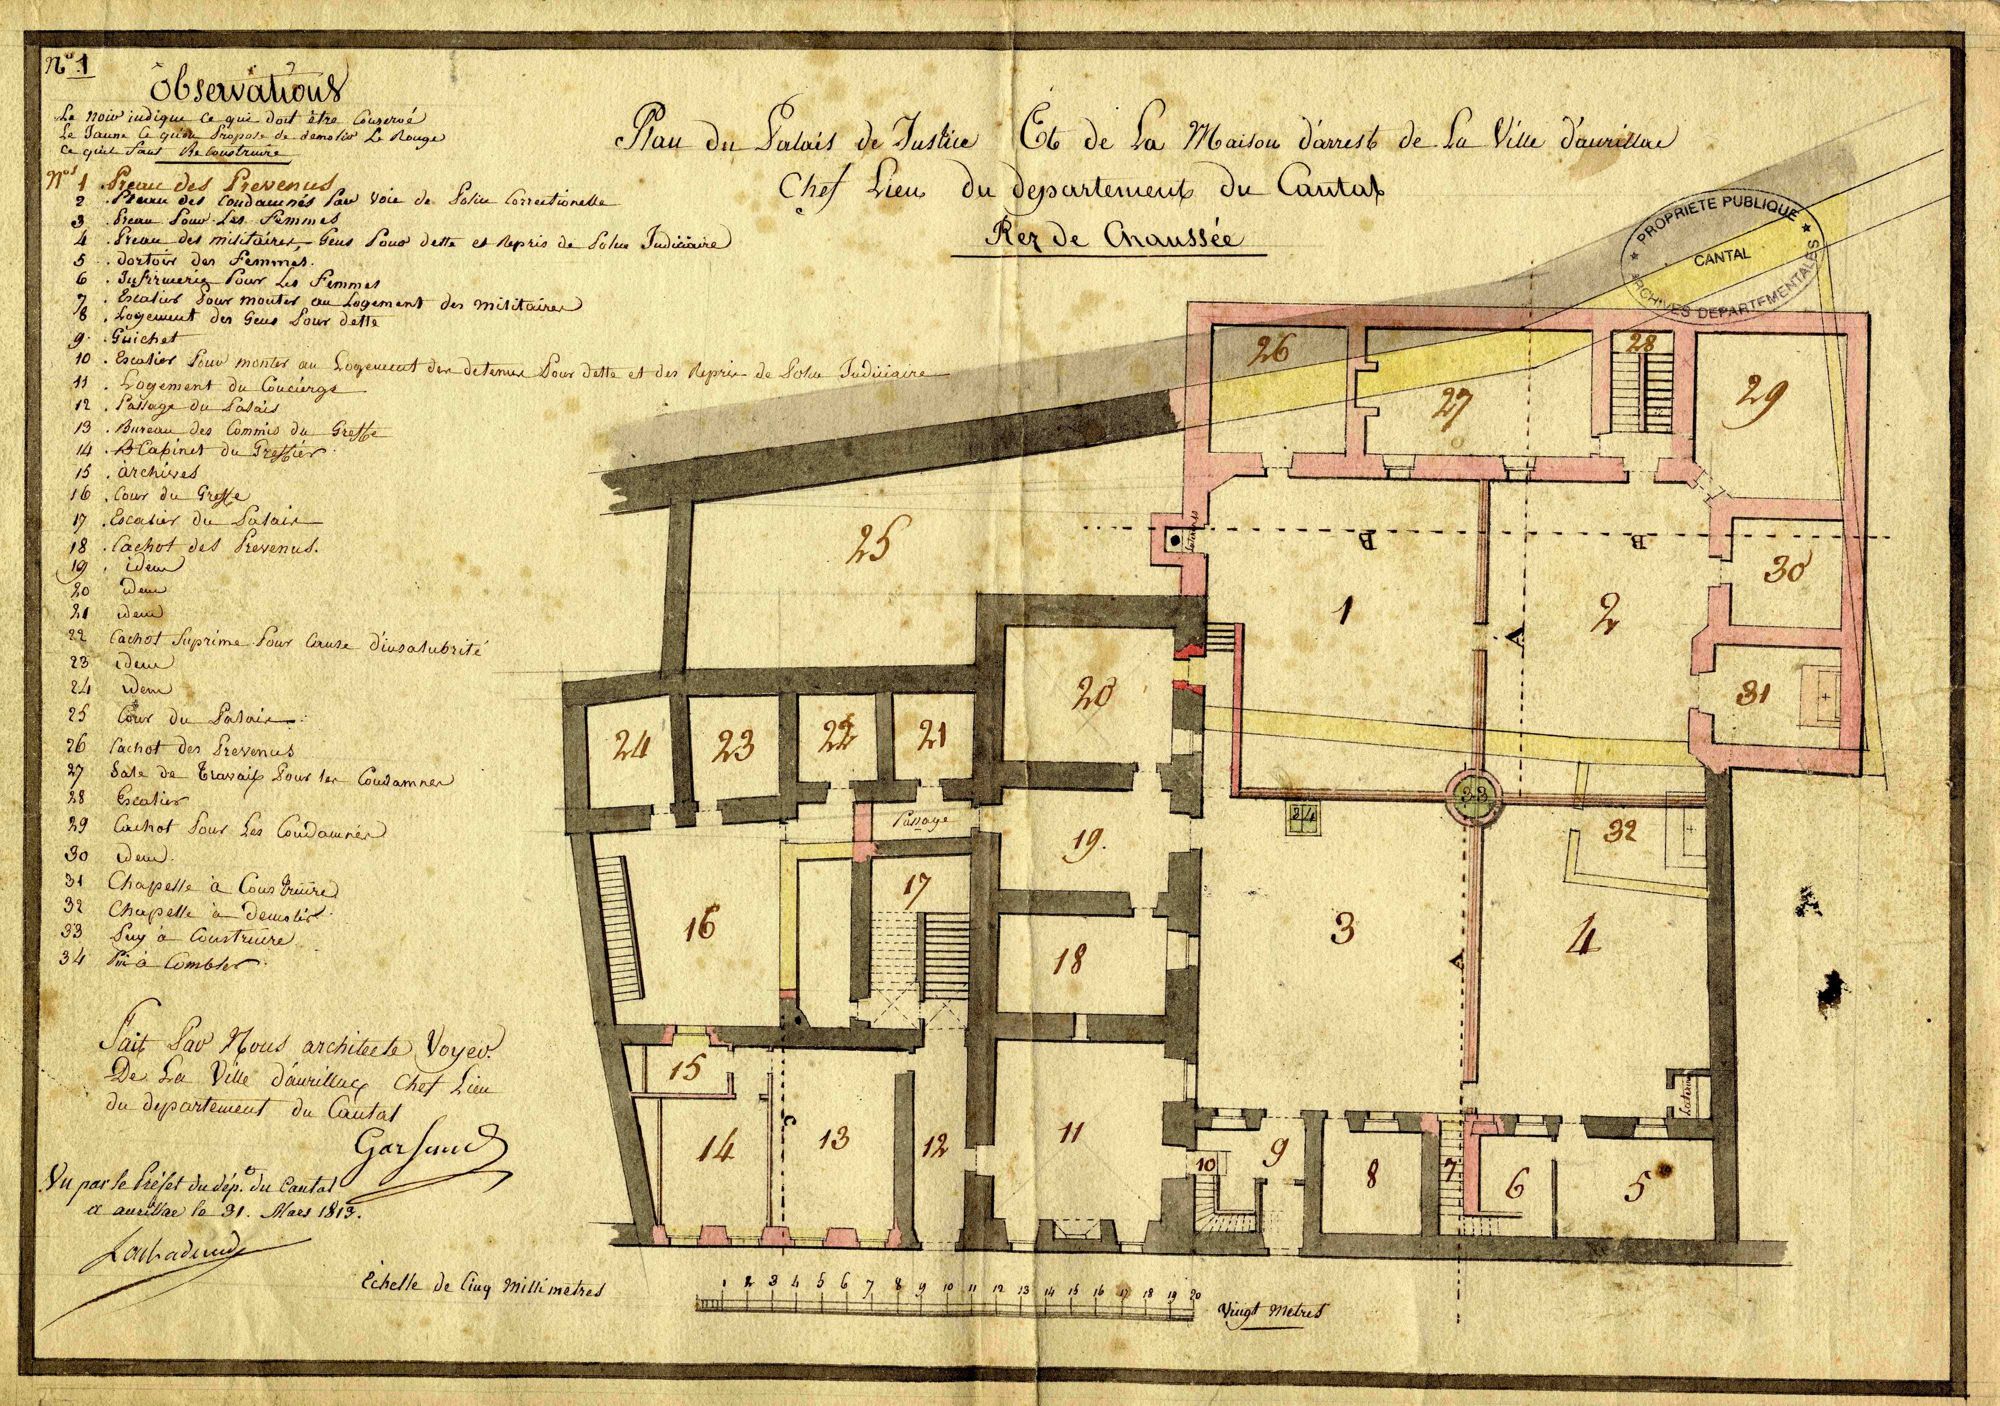 N° 1
Observations
Le Noir indique ce qui doit être Conservé
Le Jaune Ce qu'on Propose de demolir Le Rouge
Ce qu'il faut Reconstruire
N.os 1 . Preau des Prevenus
2 . Preau des Condamnés Par Voie de Police Correctionelle
3 . Preau Pour Les Femmes
4 . Preau des militaires, Gens Pour dette et Repris de Police Judiciaire
5 . dortoir des Femmes.
6 . Infirmerie Pour Les Femmes
7 . Escalier Pour monter au Logement des militaires
8 . Logement des Gens Pour dette
9 . Guichet
10 . Escalier Pour monter au Logement des detenus Pour dette et des Repris de Police Judiciaire
11 . Logement du Concierge
12 . Passage du Palais
13 . Bureau des Commis du Greffe
14 . Cabinet du Greffier
15 . archives
16 . Cour du Greffe
17 . Escalier du Palais
18 . Cachot des Prevenus.
19 . idem
20 idem
21 idem
22 Cachot Suprime Pour Cause d'insalubrité
23 idem
24 idem
25 Cour du Palais
26 Cachot des Prevenus
27 Sale de Travail Pour les Condamnés
28 Escalier
29 Cachot Pour Les Condamnés
30 idem
31 Chapelle à Construire
32 Chapelle à demolir
33 Puy à Construire
34 Pui à Combler
Fait Par Nous architecte Voyer
De La Ville d'aurillac Chef Lieu
du departement du Cantal
Vu par le Préfet du dép.t du Cantal
a aurillac le 31. Mars 1813.
Plan du Palais de Justice Et de La Maison d'arrest de La Ville d'aurillac
Chef Lieu du departement du Cantal
Rez de Chaussée
PROPRIETE PUBLIQUE
CANTAL
ARCHIVES DEPARTEMENTALES
26
27
28
29
25
Latrines
B
B
1
2
30
A
31
20
24
23
22
21
33
34
32
Passage
19.
17
16
3
4
18
A
15
Latrines
C
14
13
12
11
10
9
8
7
6
5
Echelle de Cinq Millimetres
1 2 3 4 5 6 7 8 9 10 11 12 13 14 15 16 17 18 19 20
Vingt Metres